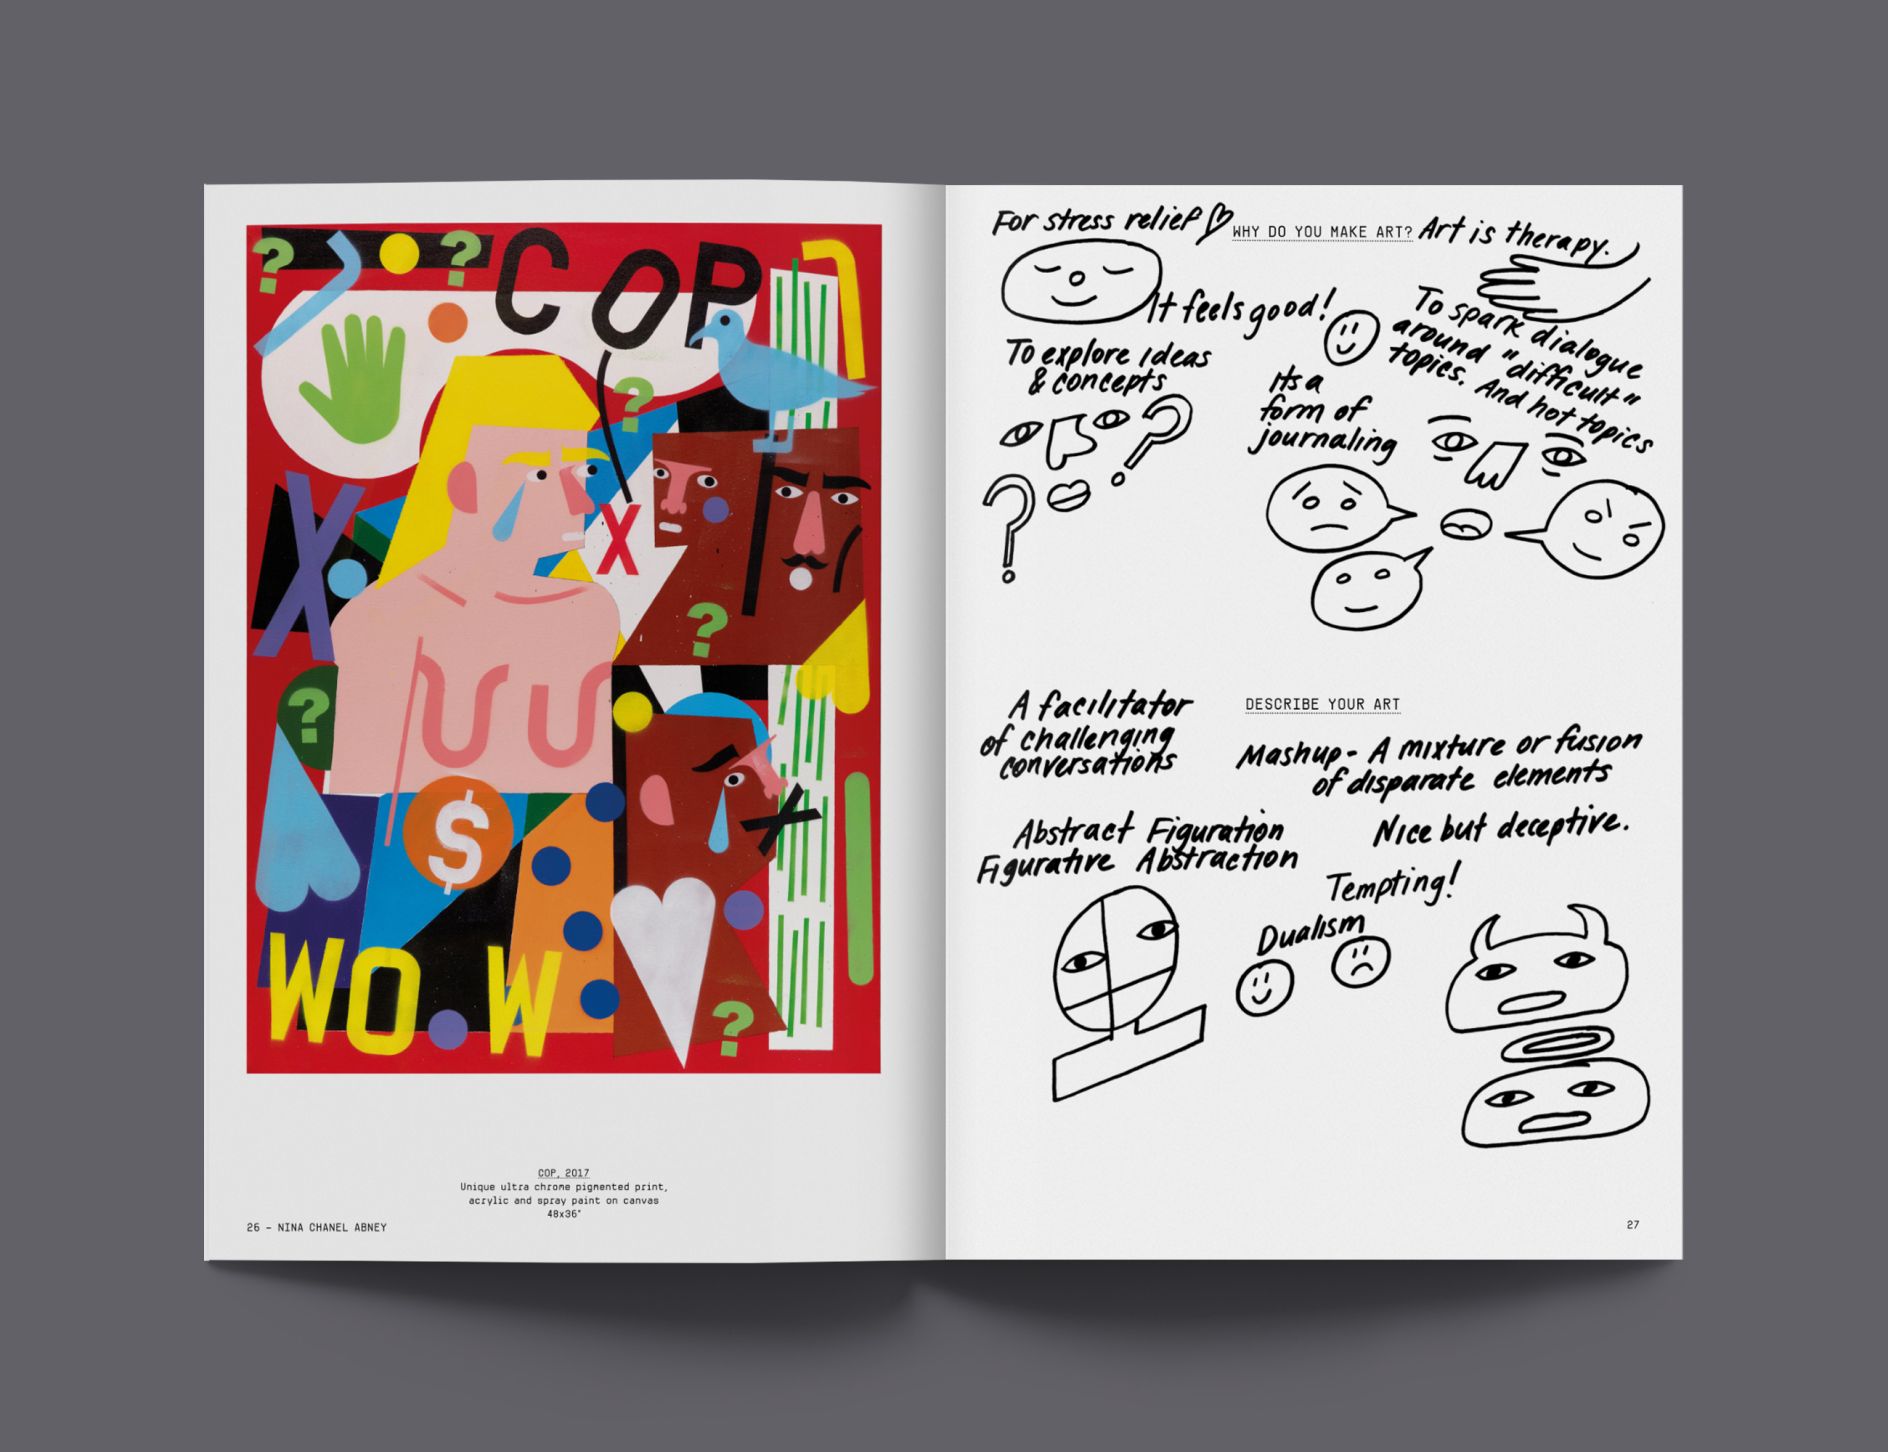 ?
?
COP
?
X
X
?
?
$
WO.W
?
COP, 2017
Unique ultra chrome pigmented print,
acrylic and spray paint on canvas
48x36"
26 – NINA CHANEL ABNEY
For stress relief
WHY DO YOU MAKE ART?
Art is therapy.
It feels good!
To explore ideas
& concepts
? ?
Its a
form of
journaling
To spark dialogue
around "difficult"
topics. And hot topics
DESCRIBE YOUR ART
A facilitator
of challenging
conversations
Mashup - A mixture or fusion
of disparate elements
Abstract Figuration
Figurative Abstraction
Nice but deceptive.
Tempting!
Dualism
27